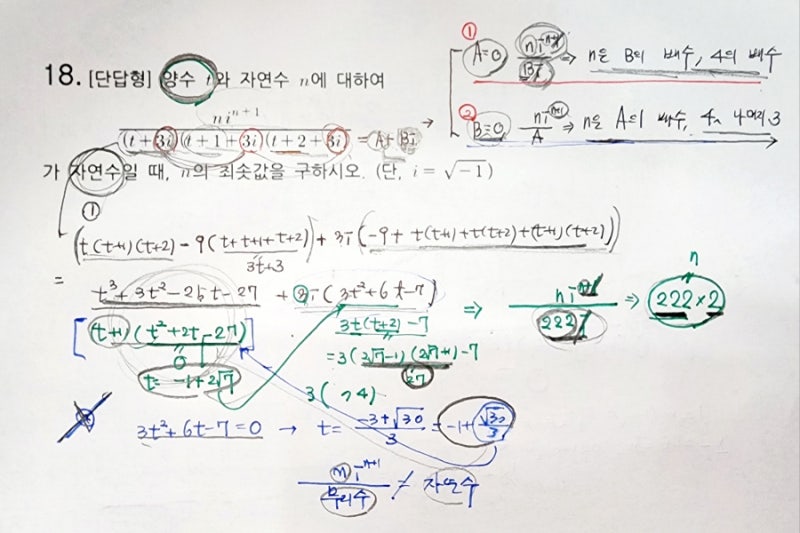 ①
A=0 ni^{n+1}/Bi ⇒ n은 B의 배수, 4의 배수
②
B=0 ni^{n+1}/A ⇒ n은 A의 배수,
18. [단답형] 양수 t와 자연수 n에 대하여
ni^{n+1}/((t+3i)(t+1+3i)(t+2+3i)) = A+Bi →
가 자연수일 때, n의 최솟값을 구하시오. (단, i=√-1)
①
(t(t+1)(t+2) - 9(t+t+1+t+2)) + 3i(-9+t(t+1)+t(t+2)+(t+1)(t+2))
3t+3
=
t³+3t²-25t-27 + 3i(3t²+6t-7) ⇒ ni^{n+1}/222i ⇒ 222×2
n
[(t+1)(t²+2t-27)] 3t(t+2)-7
0
t= -1+2√7 =3(2√7-1)(2√7+1)-7
27
3( 74)
3t²+6t-7=0 → t= (-3+√30)/3 = -1+√30/3
ni^{n+1}/무리수 ≠ 자연수